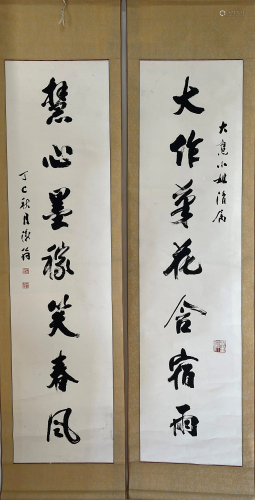 大慧小姐清屬
大作筆花含宿雨
慧心墨稼笑春風
丁巳秋月